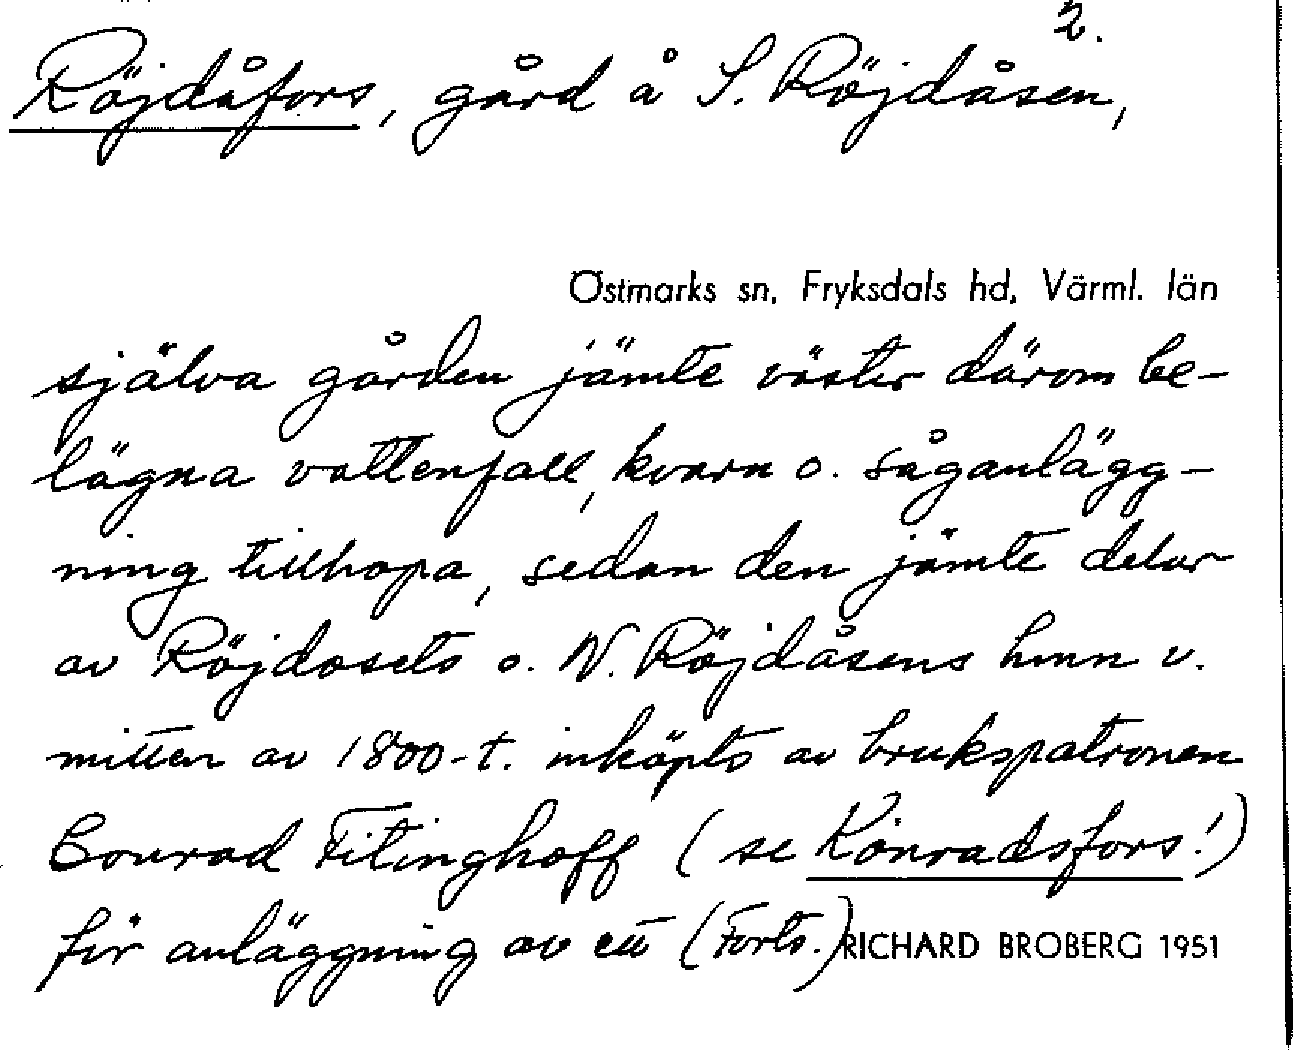 2.
Röjdåfors, gård å S. Röjdåsen,
Östmarks sn, Fryksdals hd, Värml. län
själva gården jämte väster därom be-
lägna vattenfall, kvarn o. såganlägg-
ning tillhopa, sedan den jämte delar
av Röjdosets o. N. Röjdåsens hmn v.
mitten av 1800-t. inköpts av brukspatronen
Conrad Fitinghoff (se Konradsfors!)
för anläggning av ett (Forts.)
RICHARD BROBERG 1951